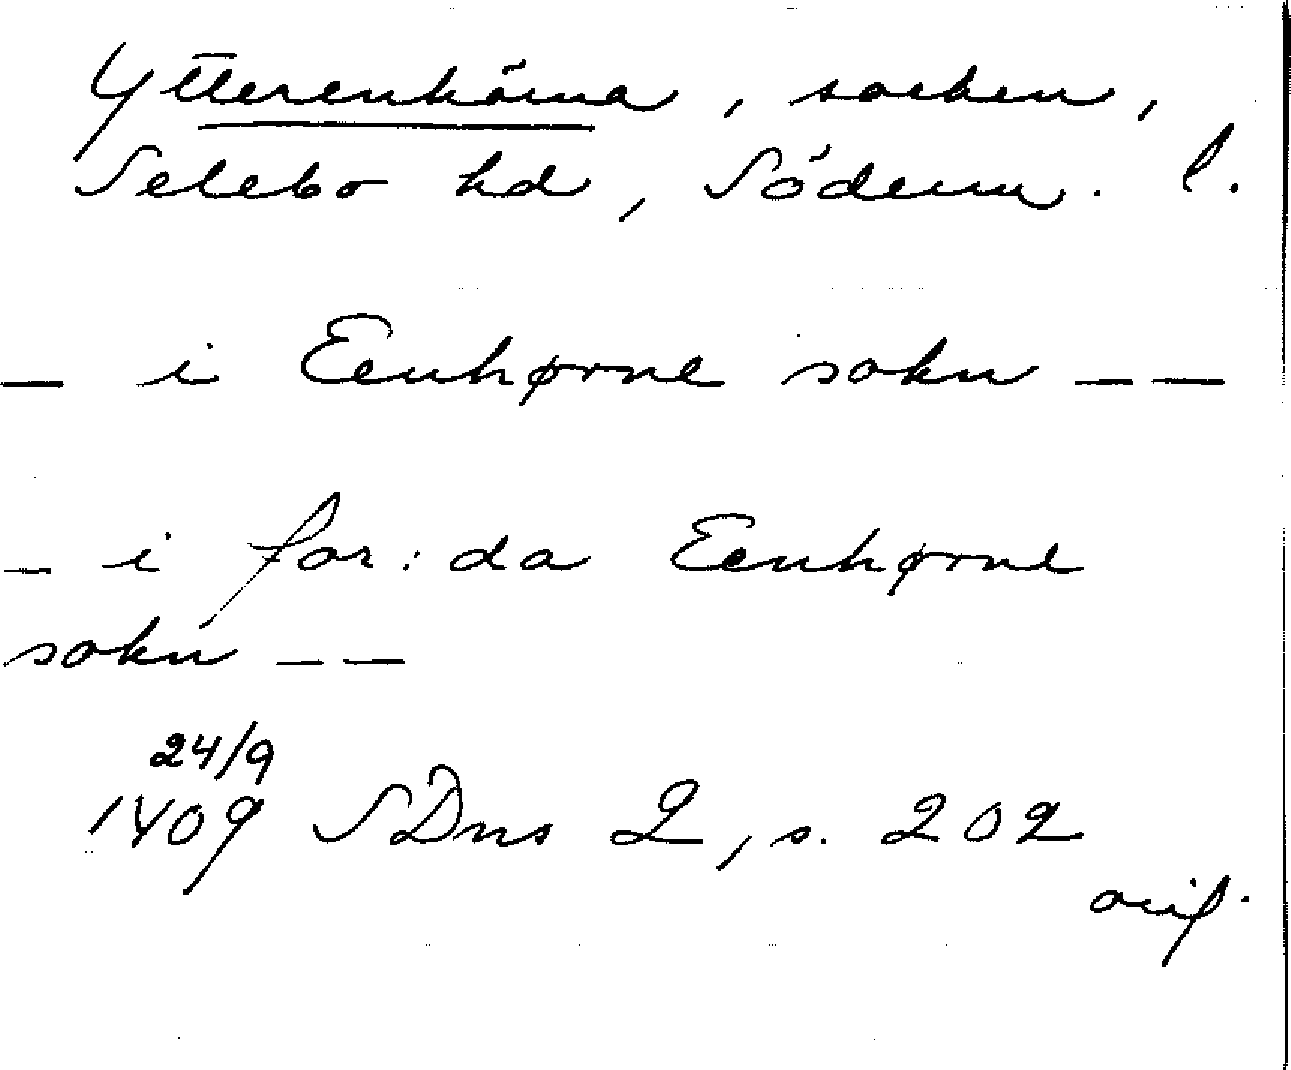 Ytterenhörna, socken,
Selebo hd, Söderm. l.
— i Eenhørne sokn — —
— i for:da Eenhørne
sokn — —
24/9
1409 SDns 2, s. 202